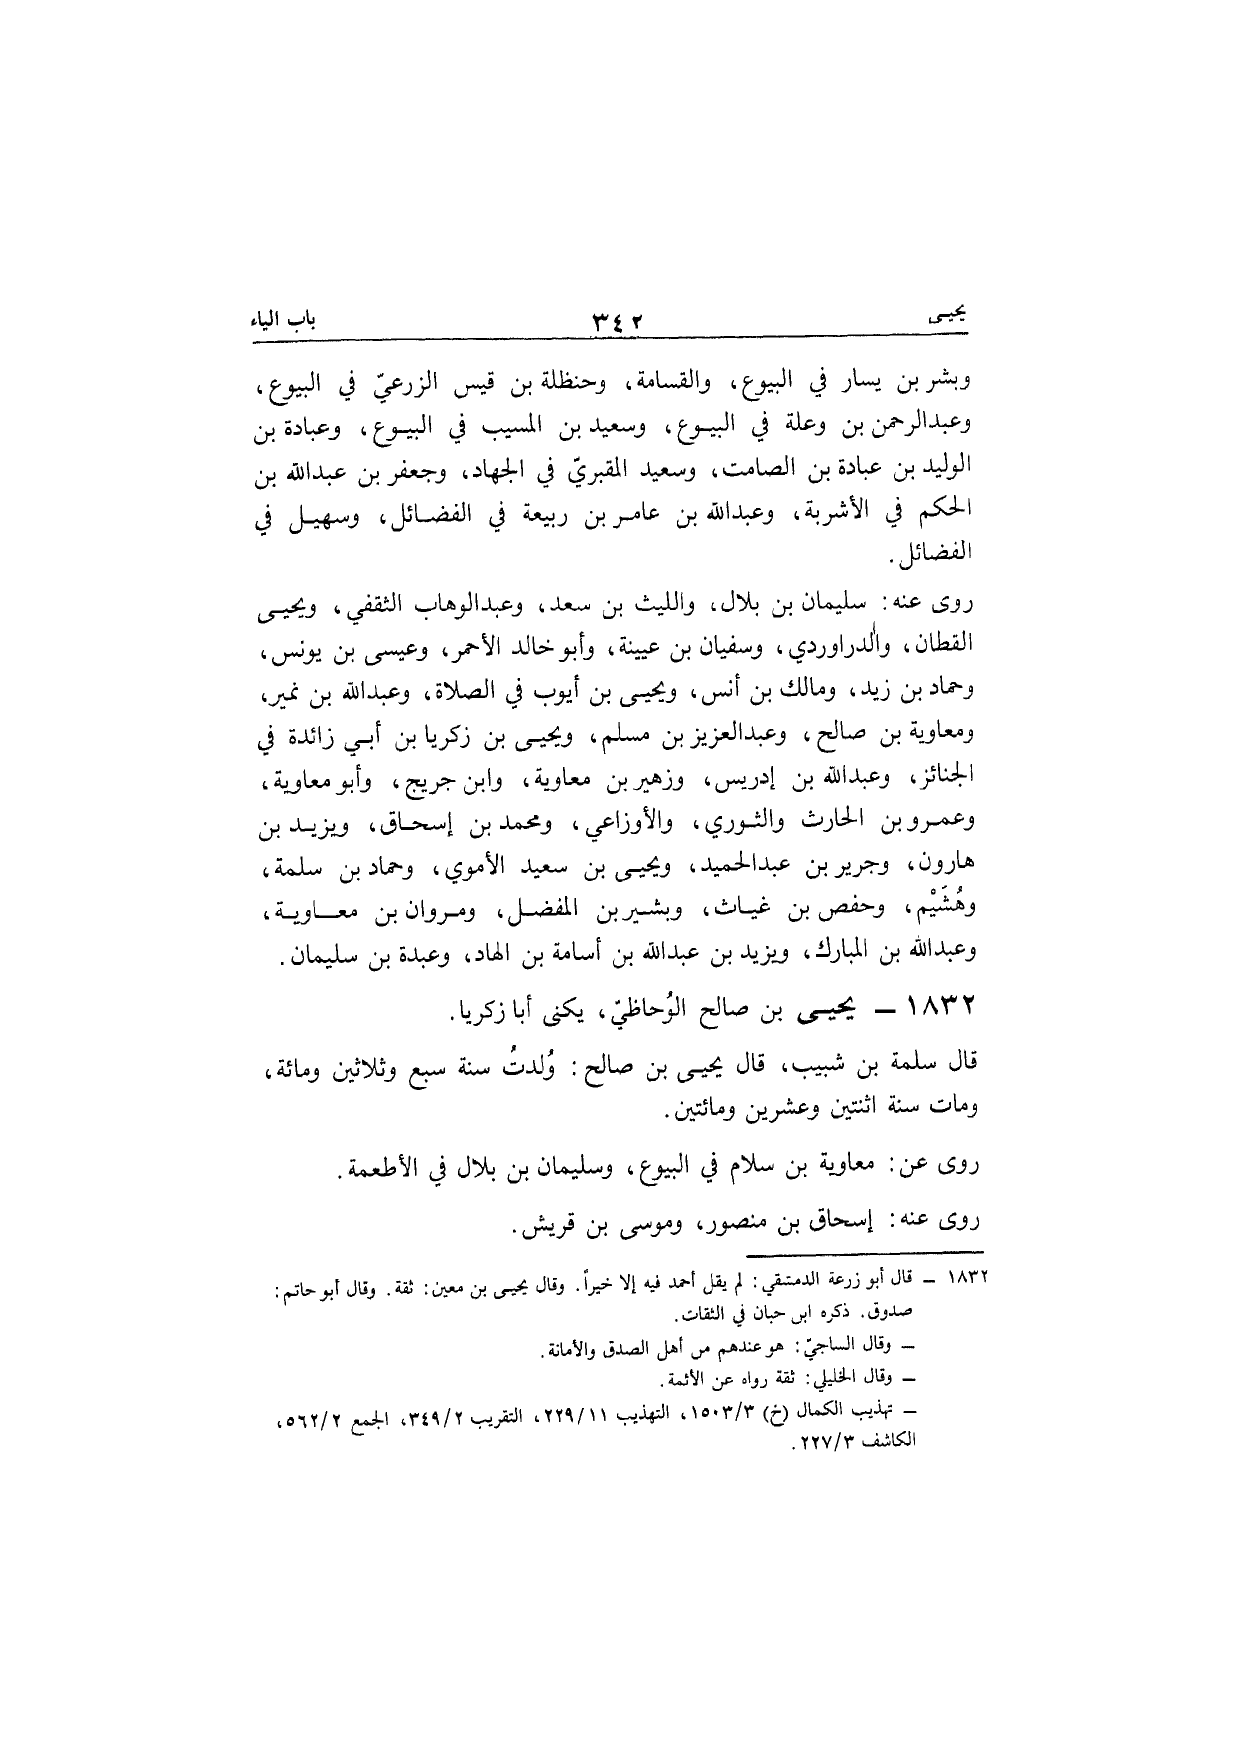 يحيـى ٣٤٢ باب الياء
وبشر بن يسار في البيوع، والقسامة، وحنظلة بن قيس الزرعيّ في البيوع،
وعبدالرحمن بن وعلة في البيـوع، وسعيد بن المسيب في البيـوع، وعبادة بن
الوليد بن عبادة بن الصامت، وسعيد المقبريّ في الجهاد، وجعفر بن عبدالله بن
الحكم في الأشربة، وعبدالله بن عامـر بن ربيعة في الفضـائل، وسهيـل في
الفضائل.
روى عنه: سليمان بن بلال، والليث بن سعد، وعبدالوهاب الثقفي، ويحيـى
القطان، والدراوردي، وسفيان بن عيينة، وأبو خالد الأحمر، وعيسى بن يونس،
وحماد بن زيد، ومالك بن أنس، ويحيـى بن أيوب في الصلاة، وعبدالله بن نمير،
ومعاوية بن صالح، وعبدالعزيز بن مسلم، ويحيـى بن زكريا بن أبـي زائدة في
الجنائز، وعبدالله بن إدريس، وزهير بن معاوية، وابن جريج، وأبو معاوية،
وعمـرو بن الحارث والثـوري، والأوزاعي، ومحمد بن إسحـاق، ويزيـد بن
هارون، وجرير بن عبدالحميد، ويحيـى بن سعيد الأموي، وحماد بن سلمة،
وهُشَيْم، وحفص بن غيـاث، وبشـير بن المفضـل، ومـروان بن معـاويـة،
وعبدالله بن المبارك، ويزيد بن عبدالله بن أسامة بن الهاد، وعبدة بن سليمان.
١٨٣٢ ــ يحيـى بن صالح الوُحاظيّ، يكنى أبا زكريا.
قال سلمة بن شبيب، قال يحيـى بن صالح: وُلدتُ سنة سبع وثلاثين ومائة،
ومات سنة اثنتين وعشرين ومائتين.
روى عن: معاوية بن سلام في البيوع، وسليمان بن بلال في الأطعمة.
روى عنه: إسحاق بن منصور، وموسى بن قريش.
١٨٣٢ ــ قال أبو زرعة الدمشقي: لم يقل أحمد فيه إلا خيراً. وقال يحيـى بن معين: ثقة. وقال أبو حاتم:
صدوق. ذكره ابن حبان في الثقات.
ــ وقال الساجيّ: هو عندهم من أهل الصدق والأمانة.
ــ وقال الخليلي: ثقة رواه عن الأئمة.
ــ تهذيب الكمال (خ) ١٥٠٣/٣، التهذيب ٢٢٩/١١، التقريب ٣٤٩/٢، الجمع ٥٦٢/٢،
الكاشف ٢٢٧/٣.